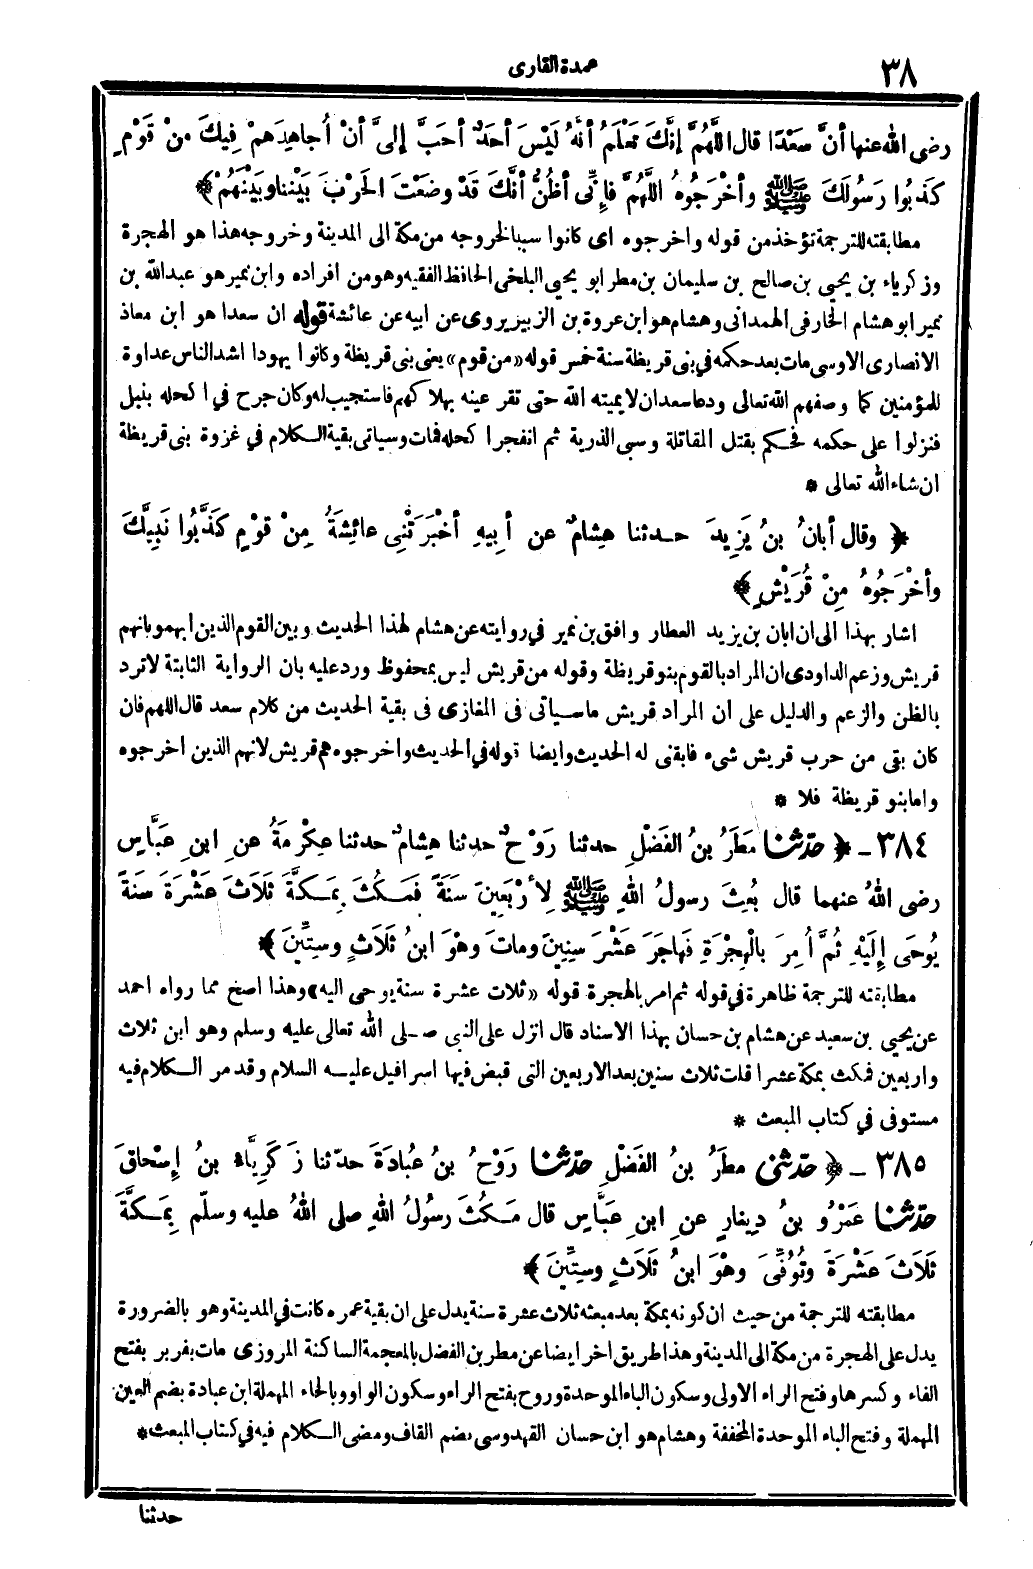 ٣٨
عمدة القارى
رضى الله عنها أنَّ سَعْدًا قال اللَّهُمَّ إنَّكَ تَعْلَمُ أنَّهُ لَيْسَ أحَدٌ أحَبَّ إلىَّ أنْ أُجاهِدَهمْ فِيكَ منْ قَوْمٍ
كَذَبُوا رَسُولَكَ ﷺ وأخْرَجُوهُ اللَّهُمَّ فإِنِّى أظُنُّ أنَّكَ قَدْ وضَعْتَ الحَرْبَ بَيْنَنا وبَيْنَهُمْ﴾
مطابقته للترجمة تؤخذ من قوله واخرجوه اى كانوا سببا لخروجه من مكة الى المدينة وخروجه هذا هو الهجرة
وزكرياء بن يحيى بن صالح بن سليمان بن مطر ابو يحيى البلخى الحافظ الفقيه وهو من افراده وابن نمير هو عبدالله بن
نمير ابو هشام الخارفى الهمدانى وهشام هو ابن عروة بن الزبير يروى عن ابيه عن عائشة قوله ان سعدا هو ابن معاذ
الانصارى الاوسى مات بعد حكمه في بنى قريظة سنة خمس قوله «من قوم» يعنى بنى قريظة وكانوا يهودا اشد الناس عداوة
للمؤمنين كما وصفهم الله تعالى ودعا سعد ان لا يميته الله حتى تقر عينه بهلاكهم فاستجيب له وكان جرح في اكحله بنبل
فنزلوا على حكمه فحكم بقتل المقاتلة وسبى الذرية ثم انفجر اكحله فمات وسياتى بقية الكلام في غزوة بنى قريظة
ان شاء الله تعالى *
﴿ وقال أبانُ بنُ يَزِيدَ حدثنا هِشامٌ عن أبِيهِ أخْبَرَتْنِى عائِشَةُ مِنْ قَوْمٍ كَذَّبُوا نَبِيَّكَ
وأخْرَجُوهُ مِنْ قُرَيْشٍ﴾
اشار بهذا الى ان ابان بن يزيد العطار وافق بن نمير في روايته عن هشام لهذا الحديث وبين القوم الذين ابهموبانهم
قريش وزعم الداودى ان المراد بالقوم بنو قريظة وقوله من قريش ليس بمحفوظ ورد عليه بان الرواية الثابتة لا ترد
بالظن والزعم والدليل على ان المراد قريش ما سياتى فى المغازى فى بقية الحديث من كلام سعد قال اللهم فان
كان بقى من حرب قريش شىء فابقنى له الحديث وايضا قوله في الحديث واخرجوه هم قريش لانهم الذين اخرجوه
واما بنو قريظة فلا *
٣٨٤ - ﴿ حدّثنا مَطَرُ بنُ الفَضْلِ حدثنا رَوْحٌ حدثنا هِشامٌ حدثنا عِكْرِمَةُ عنِ ابنِ عَبَّاسٍ
رضى اللهُ عنهما قال بُعِثَ رسولُ اللهِ ﷺ لِأرْبَعِينَ سَنَةً فَمَكُثَ بِمَكَّةَ ثَلَاثَ عَشْرَةَ سَنَةً
يُوحَى إلَيْهِ ثُمَّ أُمِرَ بالْهِجْرَةِ فَهاجَرَ عَشْرَ سِنِينَ وماتَ وهْوَ ابنُ ثَلَاثٍ وسِتِّينَ ﴾
مطابقته للترجمة ظاهرة في قوله ثم امر بالهجرة قوله «ثلاث عشرة سنة يوحى اليه» وهذا اصح مما رواه احمد
عن يحيى بن سعيد عن هشام بن حسان بهذا الاسناد قال انزل على النبى صلى الله تعالى عليه وسلم وهو ابن ثلاث
واربعين فمكث بمكة عشرا قلت ثلاث سنين بعد الاربعين التى قبض فيها اسرافيل عليه السلام وقد مر الكلام فيه
مستوفى في كتاب المبعث *
٣٨٥ - ﴿ حدّثنى مطَرُ بنُ الفَضْلِ حدّثنا رَوْحُ بنُ عُبادَةَ حدّثنا زَكَرِيَّاءُ بنُ إسْحاقَ
حدّثنا عَمْرُو بنُ دِينارٍ عنِ ابنِ عَبَّاسٍ قال مَكُثَ رسُولُ اللهِ صلى اللهُ عليه وسلّم بِمَكَّةَ
ثَلَاثَ عَشْرَةَ وتُوُفِّىَ وهْوَ ابنُ ثَلَاثٍ وسِتِّينَ ﴾
مطابقته للترجمة من حيث ان كونه بمكة بعد مبعثه ثلاث عشرة سنة يدل على ان بقية عمره كانت في المدينة وهو بالضرورة
يدل على الهجرة من مكة الى المدينة وهذا طريق اخر ايضا عن مطر بن الفضل بالمعجمة الساكنة المروزى مات بفربر بفتح
الفاء وكسرها وفتح الراء الاولى وسكون الباء الموحدة وروح بفتح الراء وسكون الواو وبالحاء المهملة ابن عبادة بضم العين
المهملة وفتح الباء الموحدة المخففة وهشام هو ابن حسان القهدوسى بضم القاف ومضى الكلام فيه في كتاب المبعث *
حدثنا